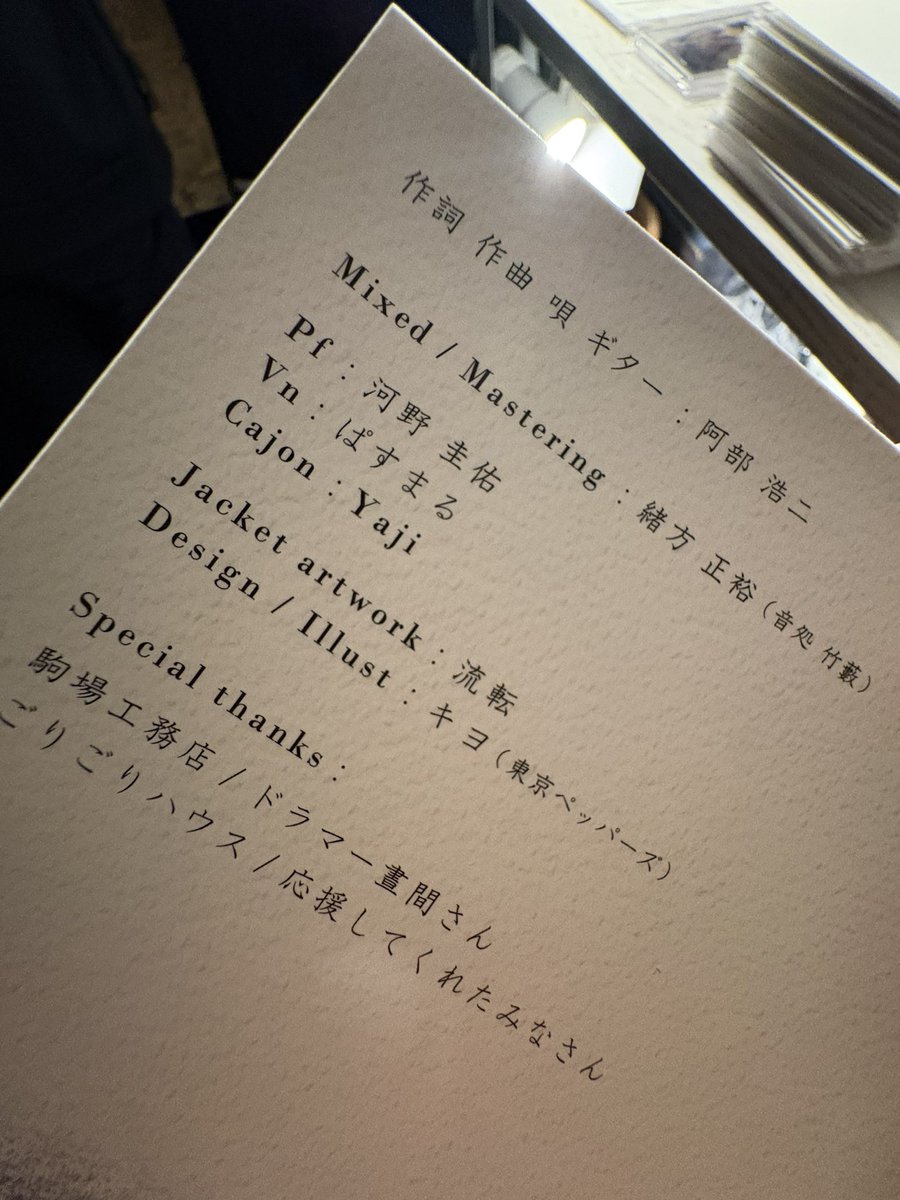 作詞 作曲 唄 ギター : 阿部 浩二
Mixed / Mastering : 緒方 正裕 (音処 竹藪)
Pf : 河野 圭佑
Vn : ぱすまる
Cajon : Yaji
Jacket artwork : 流転
Design / Illust : キヨ (東京ペッパーズ)
Special thanks :
駒場工務店 / ドラマー晝間さん
ごりごりハウス / 応援してくれたみなさん